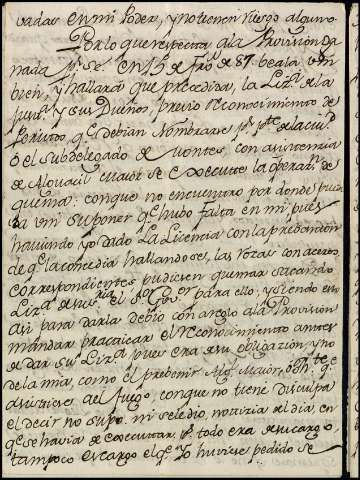 vadas en mi Poder, y no tienen riesgo alguno.
Por lo que respecta a la Provision Ga
nada pr. Se en 15 de de 87. beala vm
bien, y hallara que precedida, la Liza. de la
Junta. y sus Dueños, previo reconocimento de
Peritos, qe. debian Nombrarse pr. pte. de la ciud.
o el subdelegado de montes, con asistencia
de Alguacil se execute la operazn. de
quema: conque no encuentro por donde pueda
vm suponer qe. hubo Falta en mi pues
haviendo yo dado La Licencia con la
de qe. la concedia hallandose, las rozas con
correspondientes, pudiesen quemar sacando
Liza. de el Sor. Govor. para ello, y siendo esto
asi para darla debio con arreglo a la Provision
mandar practicar el reconocimiento antes
de dar su Liza. pues era de su obligazion, y no
de la mia, como el prebenir Algl. Maior, qe.
asistiese al fuego, conque no tiene disculpa
el decir no supo. ni se le dio, notizia del dia, en
qe. se havia de executar, pr. todo era de su cargo,
tampoco es cargo el qe. Yo huviese pedido se